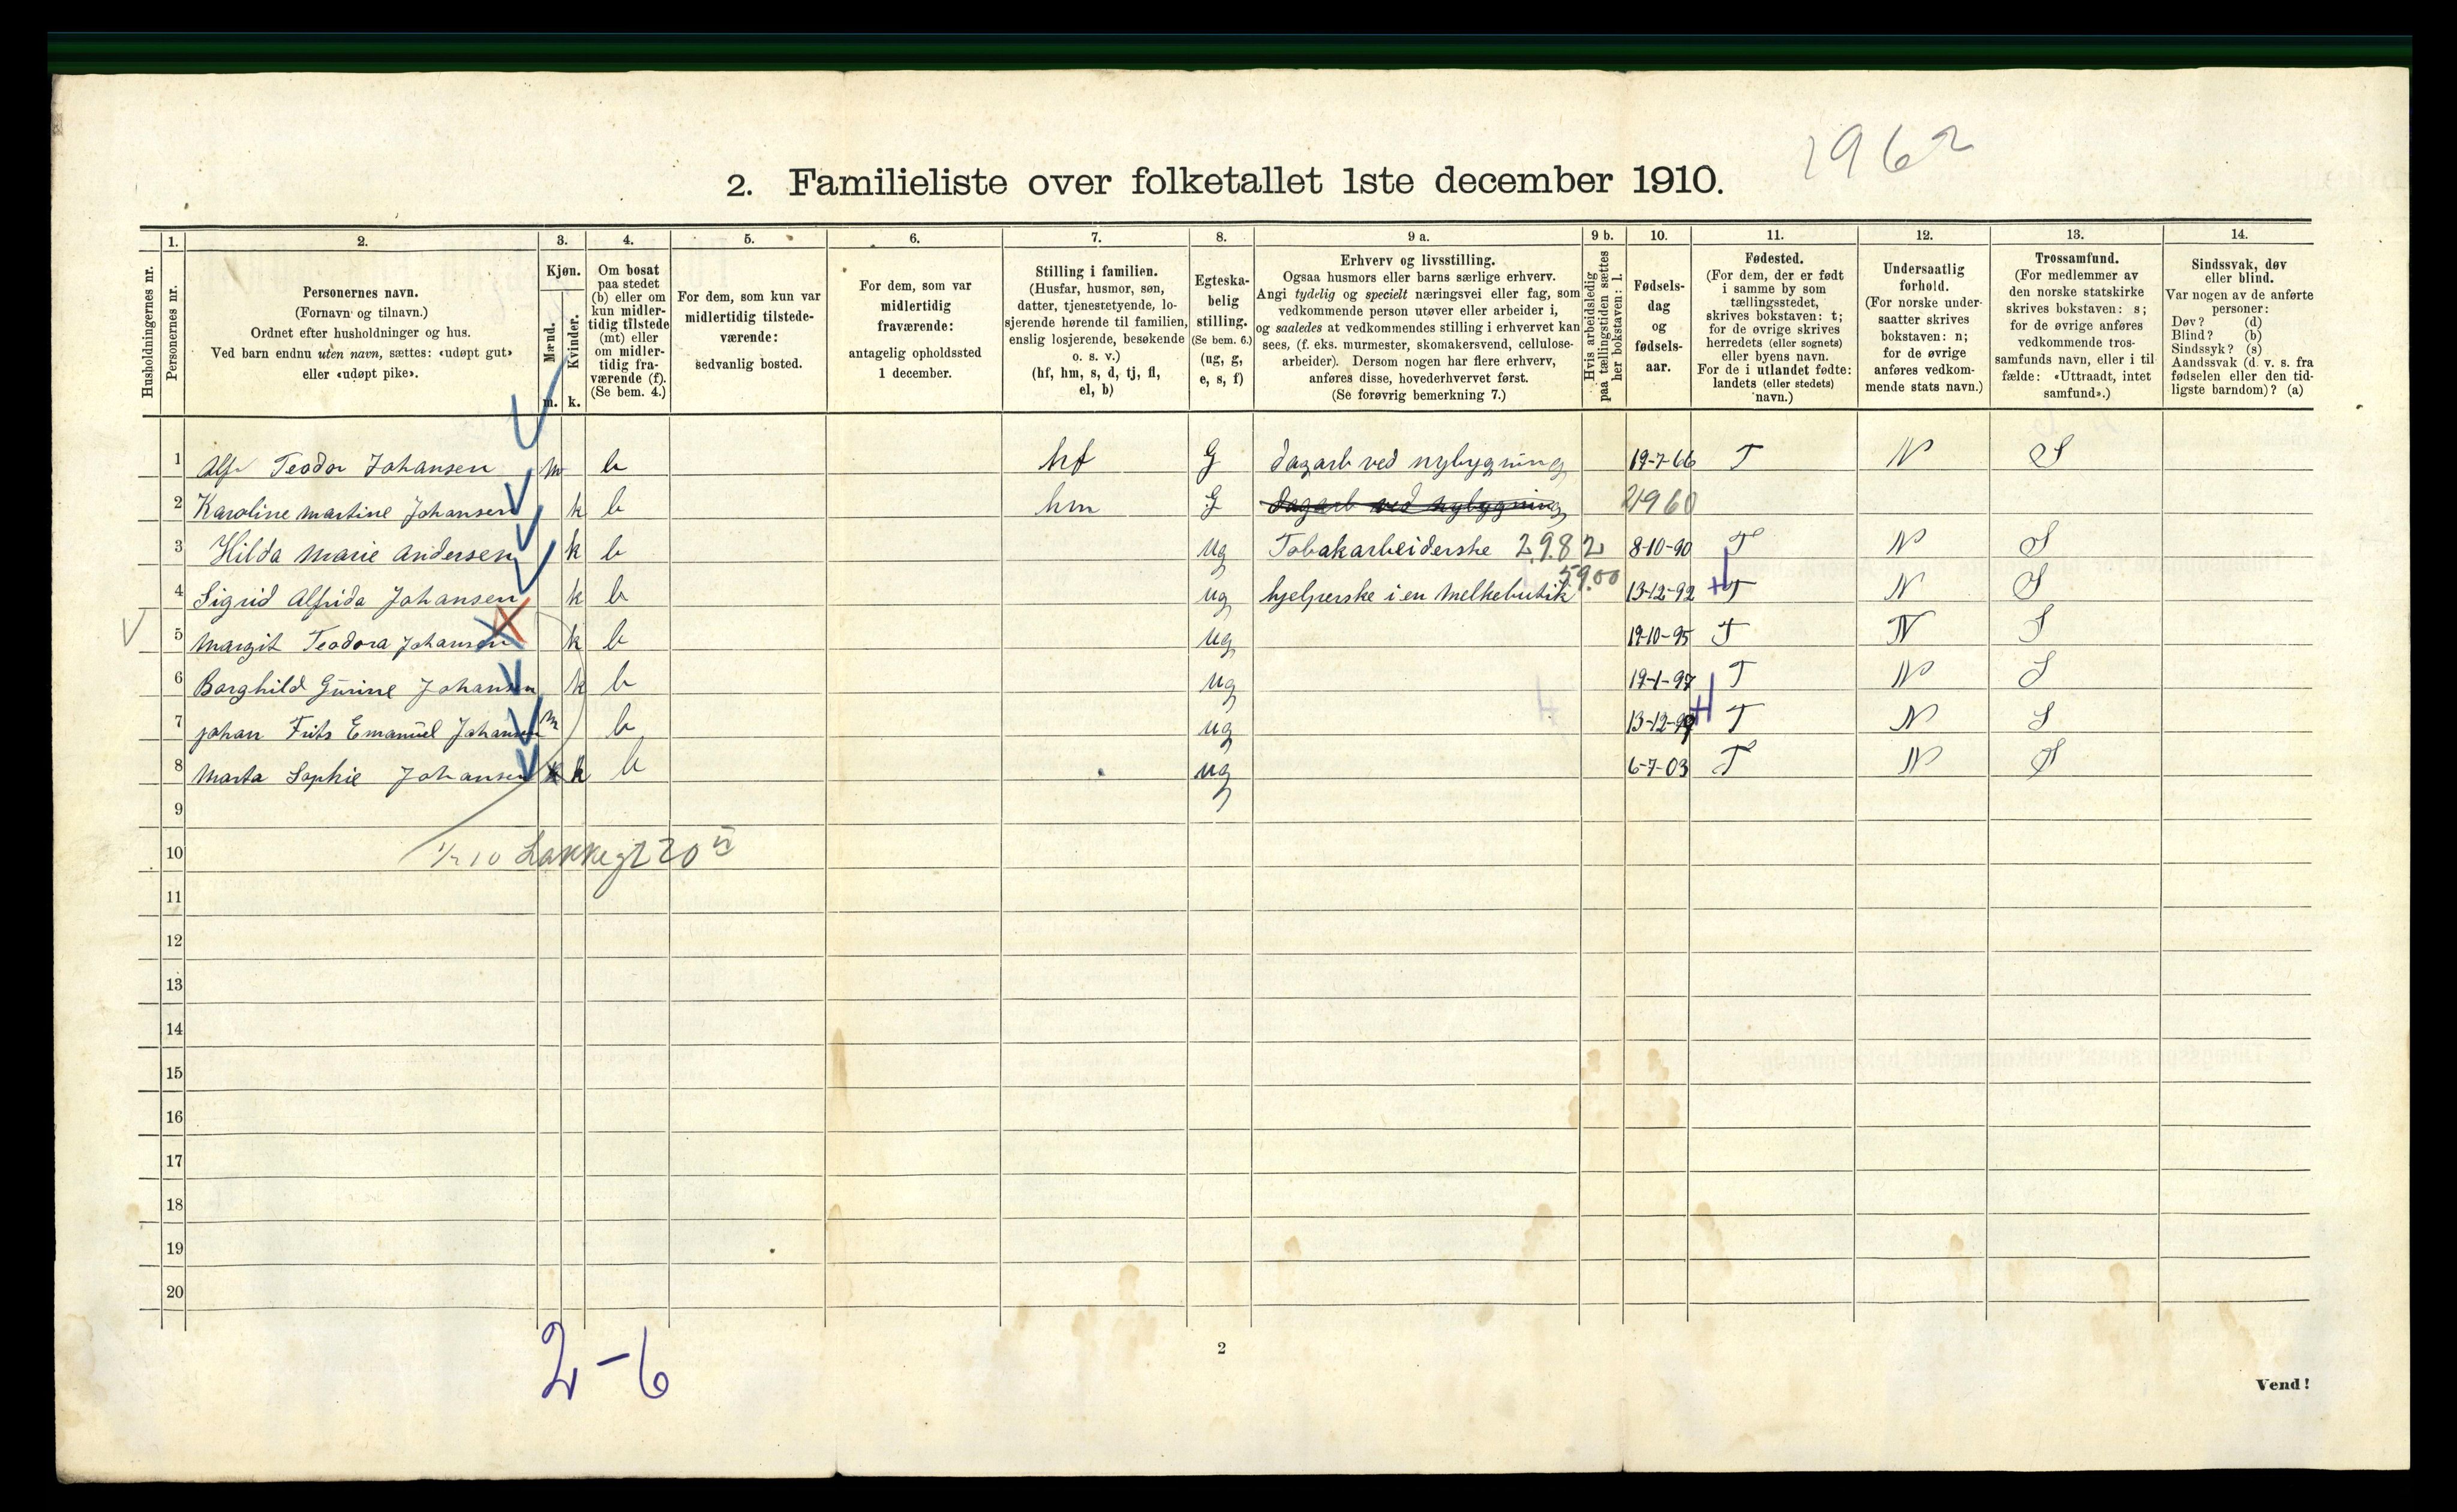 1962
2. Familieliste over folketallet 1ste december 1910.
Husholdningernes nr.
1.
Personernes nr.
2.
Personernes navn.
(Fornavn og tilnavn.)
Ordnet efter husholdninger og hus.
Ved barn endnu uten navn, sættes: «udøpt gut»
eller «udøpt pike».
3.
Kjøn.
Mænd.
Kvinder.
m. k.
4.
Om bosat
paa stedet
(b) eller om
kun midler-
tidig tilstede
(mt) eller
om midler-
tidig fra-
værende (f).
(Se bem. 4.)
5.
For dem, som kun var
midlertidig tilstede-
værende:
sedvanlig bosted.
6.
For dem, som var
midlertidig
fraværende:
antagelig opholdssted
1 december.
7.
Stilling i familien.
(Husfar, husmor, søn,
datter, tjenestetyende, lo-
sjerende hørende til familien,
enslig losjerende, besøkende
o. s. v.)
(hf, hm, s, d, tj, fl,
el, b)
8.
Egteska-
belig
stilling.
(Se bem. 6.)
(ug, g,
e, s, f)
9 a.
Erhverv og livsstilling.
Ogsaa husmors eller barns særlige erhverv.
Angi tydelig og specielt næringsvei eller fag, som
vedkommende person utøver eller arbeider i,
og saaledes at vedkommendes stilling i erhvervet kan
sees, (f. eks. murmester, skomakersvend, cellulose-
arbeider). Dersom nogen har flere erhverv,
anføres disse, hovederhvervet først.
(Se forøvrig bemerkning 7.)
9 b.
Hvis arbeidsledig
paa tællingstiden sættes
her bokstaven: l.
10.
Fødsels-
dag
og
fødsels-
aar.
11.
Fødested.
(For dem, der er født
i samme by som
tællingsstedet,
skrives bokstaven: t;
for de øvrige skrives
herredets (eller sognets)
eller byens navn.
For de i utlandet fødte:
landets (eller stedets)
navn.)
12.
Undersaatlig
forhold.
(For norske under-
saatter skrives
bokstaven: n;
for de øvrige
anføres vedkom-
mende stats navn.)
13.
Trossamfund.
(For medlemmer av
den norske statskirke
skrives bokstaven: s;
for de øvrige anføres
vedkommende tros-
samfunds navn, eller i til
fælde: «Uttraadt, intet
samfund».)
14.
Sindssvak, døv
eller blind.
Var nogen av de anførte
personer:
Døv? (d)
Blind? (b)
Sindssyk? (s)
Aandssvak (d. v. s. fra
fødselen eller den tid-
ligste barndom)? (a)
1 Alf Teodor Johansen m b hf G dagarb ved nybygning 19-7-66 T N S
2 Karoline Martine Johansen k b hm G dagarb ved nybygning 21960
3 Hilda Marie Andersen k b ug Tobakarbeiderske 2982 8-10-90 T N S
4 Sigrid Alfrida Johansen k b ug hjelperske i en Melkebutik 5900 13-12-92 T N S
5 Margit Teodora Johansen k b ug 19-10-95 T N S
6 Borghild Gurine Johansen k b ug 19-1-97 T N S
7 Johan Frits Emanuel Johansen m b ug 13-12-99 T N S
8 Marta Sophie Johansen k b ug 6-7-03 T N S
9
10 1/2 10 Lakkegt 20
11
12
13
14
15
16
17
18
19
20
2-6
2
Vend!